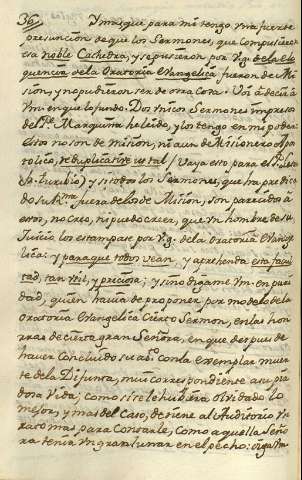 36// Y mas que para mi tengo una fuerte
presuncion de que los Sermones, que compusieron
esa noble Cathedra, y se pusieron por v.g. de la Elo
quencia de la Oratoria Evangelica, fueron de Mi
sion, y no pudieron ser de otra cosa. Voi à decir à
Vm en que lo fundo. Dos unicos Sermones impresos
del Pe. Marquina he leido, y los tengo en mi poder:
Estos no son de Mision, ni aun de Misionero Apos
tolico, reduplicative ut tal (vaya esto para el Pe.
Fr. Eusebio) y si todos los Sermones, que ha predica
do su Rma. fuera de los de Mision, son parecidos à
estos, no creo, ni puedo creer, que Un hombre de su
Juicio los estampase por v.g. de la oratoria Evange
lica: y para que todos vean, y aprehendan esta facul
tad, tan util, y preciosa; y sino digame Vm en puri
dad, quien havia de proponer por modelo de la
oratoria Evangelica Cierto Sermon, en las hon
ras de cierta gran Señora, en que despues de
haver Concluido su con la exemplar muer
te de la Difunta, mui correspondiente à su pia
dosa Vida; como si se le hubiera olvidado lo
mejor, y mas del Caso, detiene al Auditorio Un
rato mas para Contarle, Como aquella Seño
ra tenia Un gran lunar en el pecho: oiga Vm